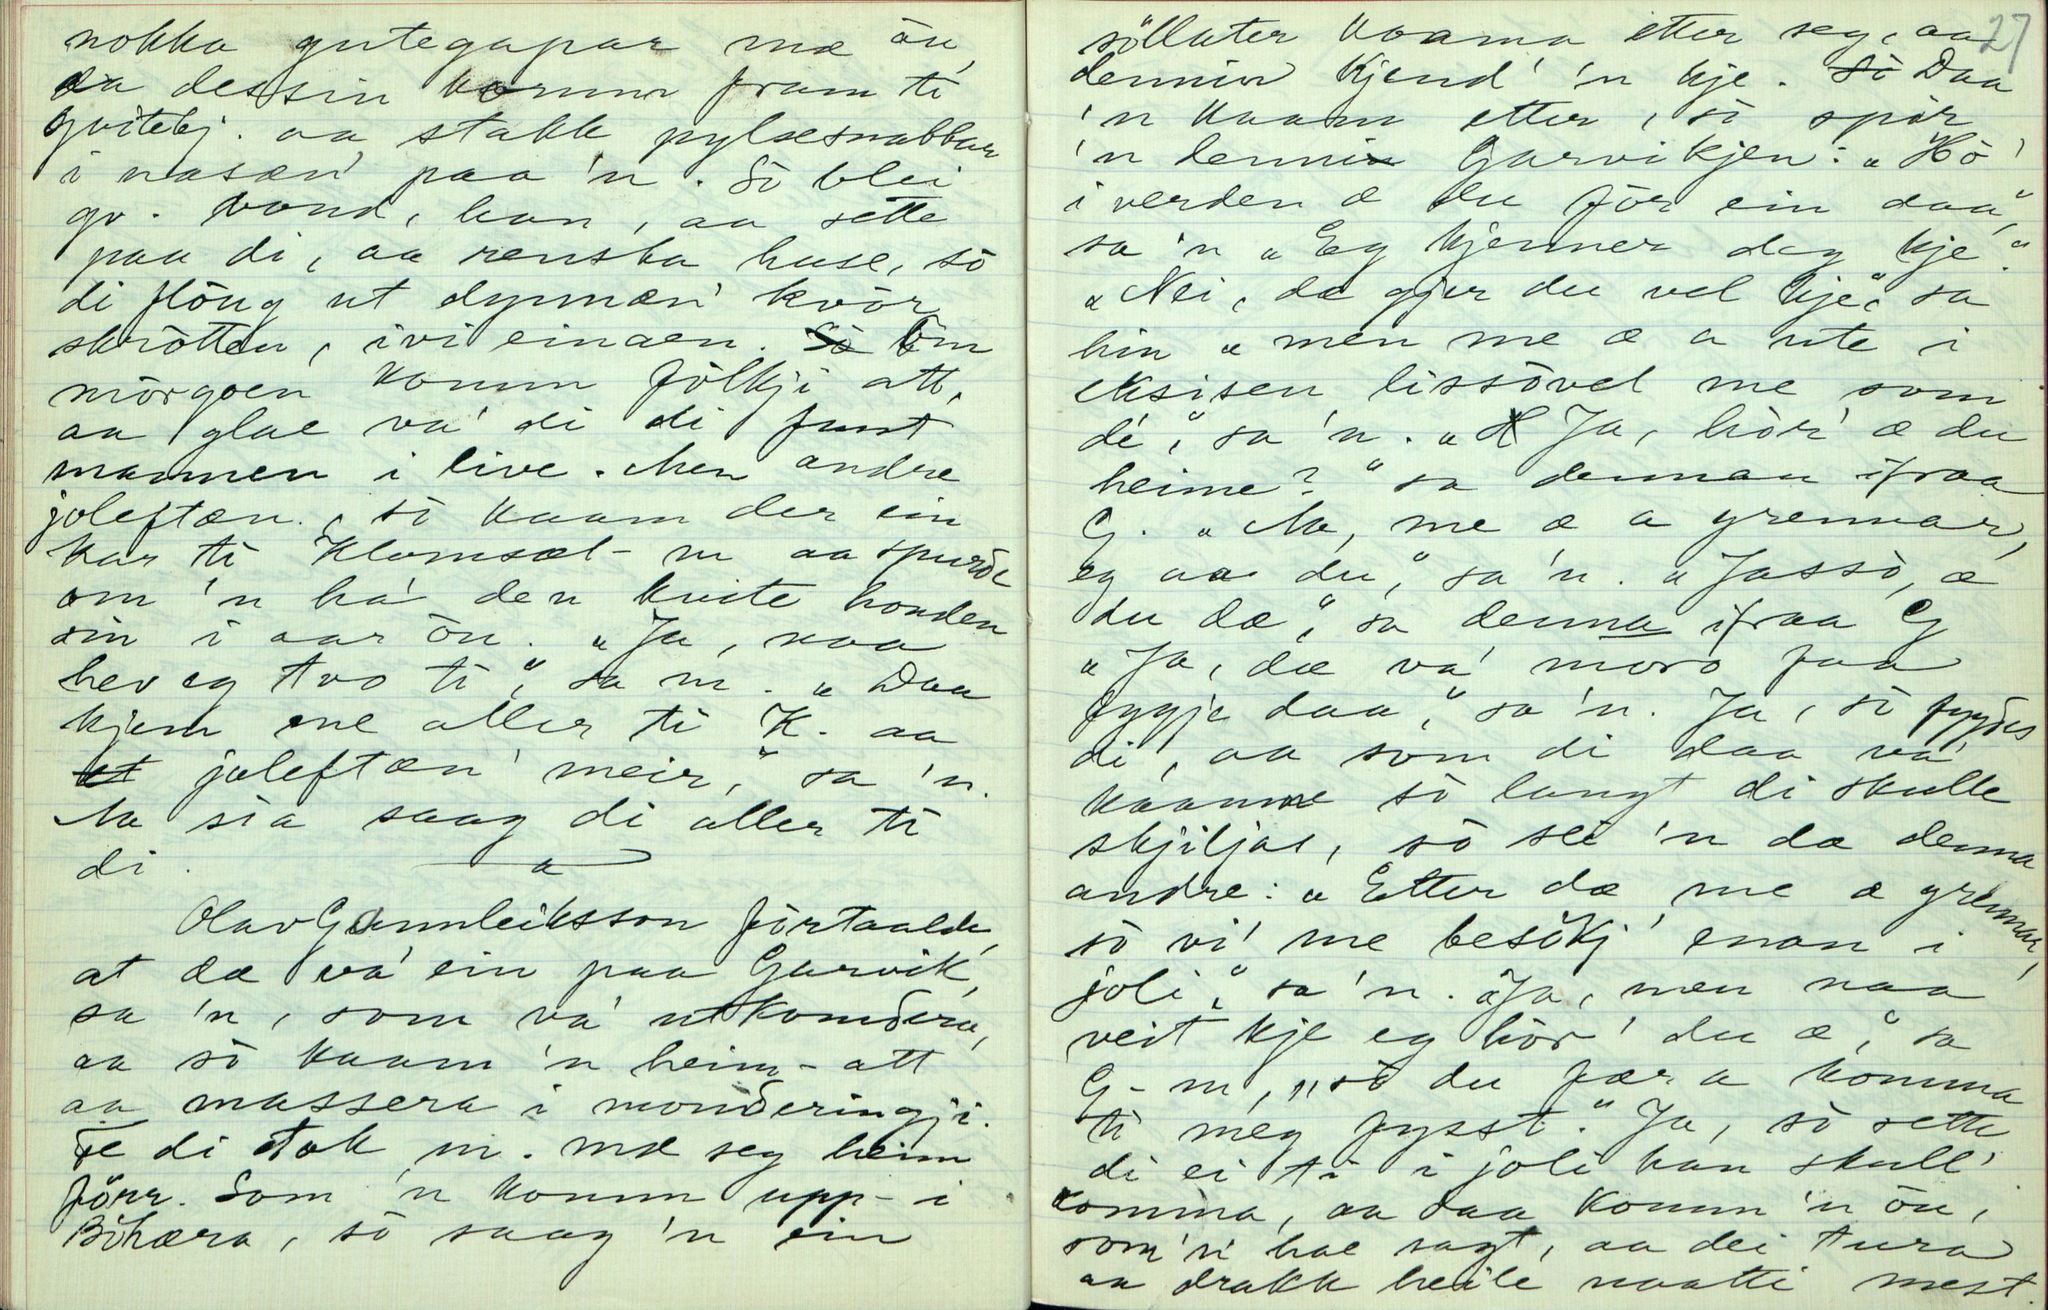 nokka gutegapar mæ òn,
da dessin komm fram ti
gvitebj. aa stakk pylsesnabbar
i nasæn' paa 'n. Sò blei
gv. vond, han, aa sette
paa di, aa renska huse, sò
di flòug ut dynnæn' kvòr
skròtten, ivi einaen. Sò Òm
mòrgoen komm fòlkji att,
aa glae va' di di funt
mannen i live. Men andre
joleftæn., sò kaam der ein
kar ti Klomsæt-m aa spurde
om 'n ha' den kvite honden
sin i aar òn. „Ja, naa
hev eg tvo ti", sa m. „Daa
kjem me aller ti K. aa
et joleftæn' meir," sa 'n.
Na sia saag di aller ti
di.
Olav Gunnleiksson fòrtaalde,
at dæ va' ein paa Garvik,
sa 'n, som va' utkomdera,
aa sò kaam 'n heim-att
aa massera i monderingji.
Fe di tok m. mæ seg heim
fòrr. Som 'n komm upp-i
Bòhæra, sò saag 'n ein
27
sòllater kaama etter seg, aa
dennin kjend' 'n kje. Sò Daa
'n kaam etter, sò spòr
'n dennin Garvikjen: „Hò'
i verden æ du fòr ein daa",
sa 'n „Eg kjenner deg kje."
„Nei, dæ gjer du vel kje", sa
hin „men me æ a ute i
eksisen lissòvel me som
dé", sa 'n. „H Ja, hòr' æ du
heime?" sa dennan ifraa
G. „Na, me æ a grennar,
eg aa du," sa 'n. „Jassò, æ
du dæ," sa denna ifraa G
„Ja, dæ va' moro faa
fygje daa," sa 'n. Ja, sò fygdes
di, aa som di daa va'
kaamne sò langt di skulle
skjiljas, sò sei 'n dæ denna
andre: „Etter dæ me æ grennar,
sò vi' me besòkj' enan i
joli," sa 'n. „Ja, men naa
veit kje eg hòr' du æ," sa
G-m, „sò du fær a komma
ti meg fysst." Ja, sò sette
di ei ti i joli han skull'
komma, aa daa komm 'n òn,
som 'n hae sagt, aa dei tura
aa drakk heile naatti mest.